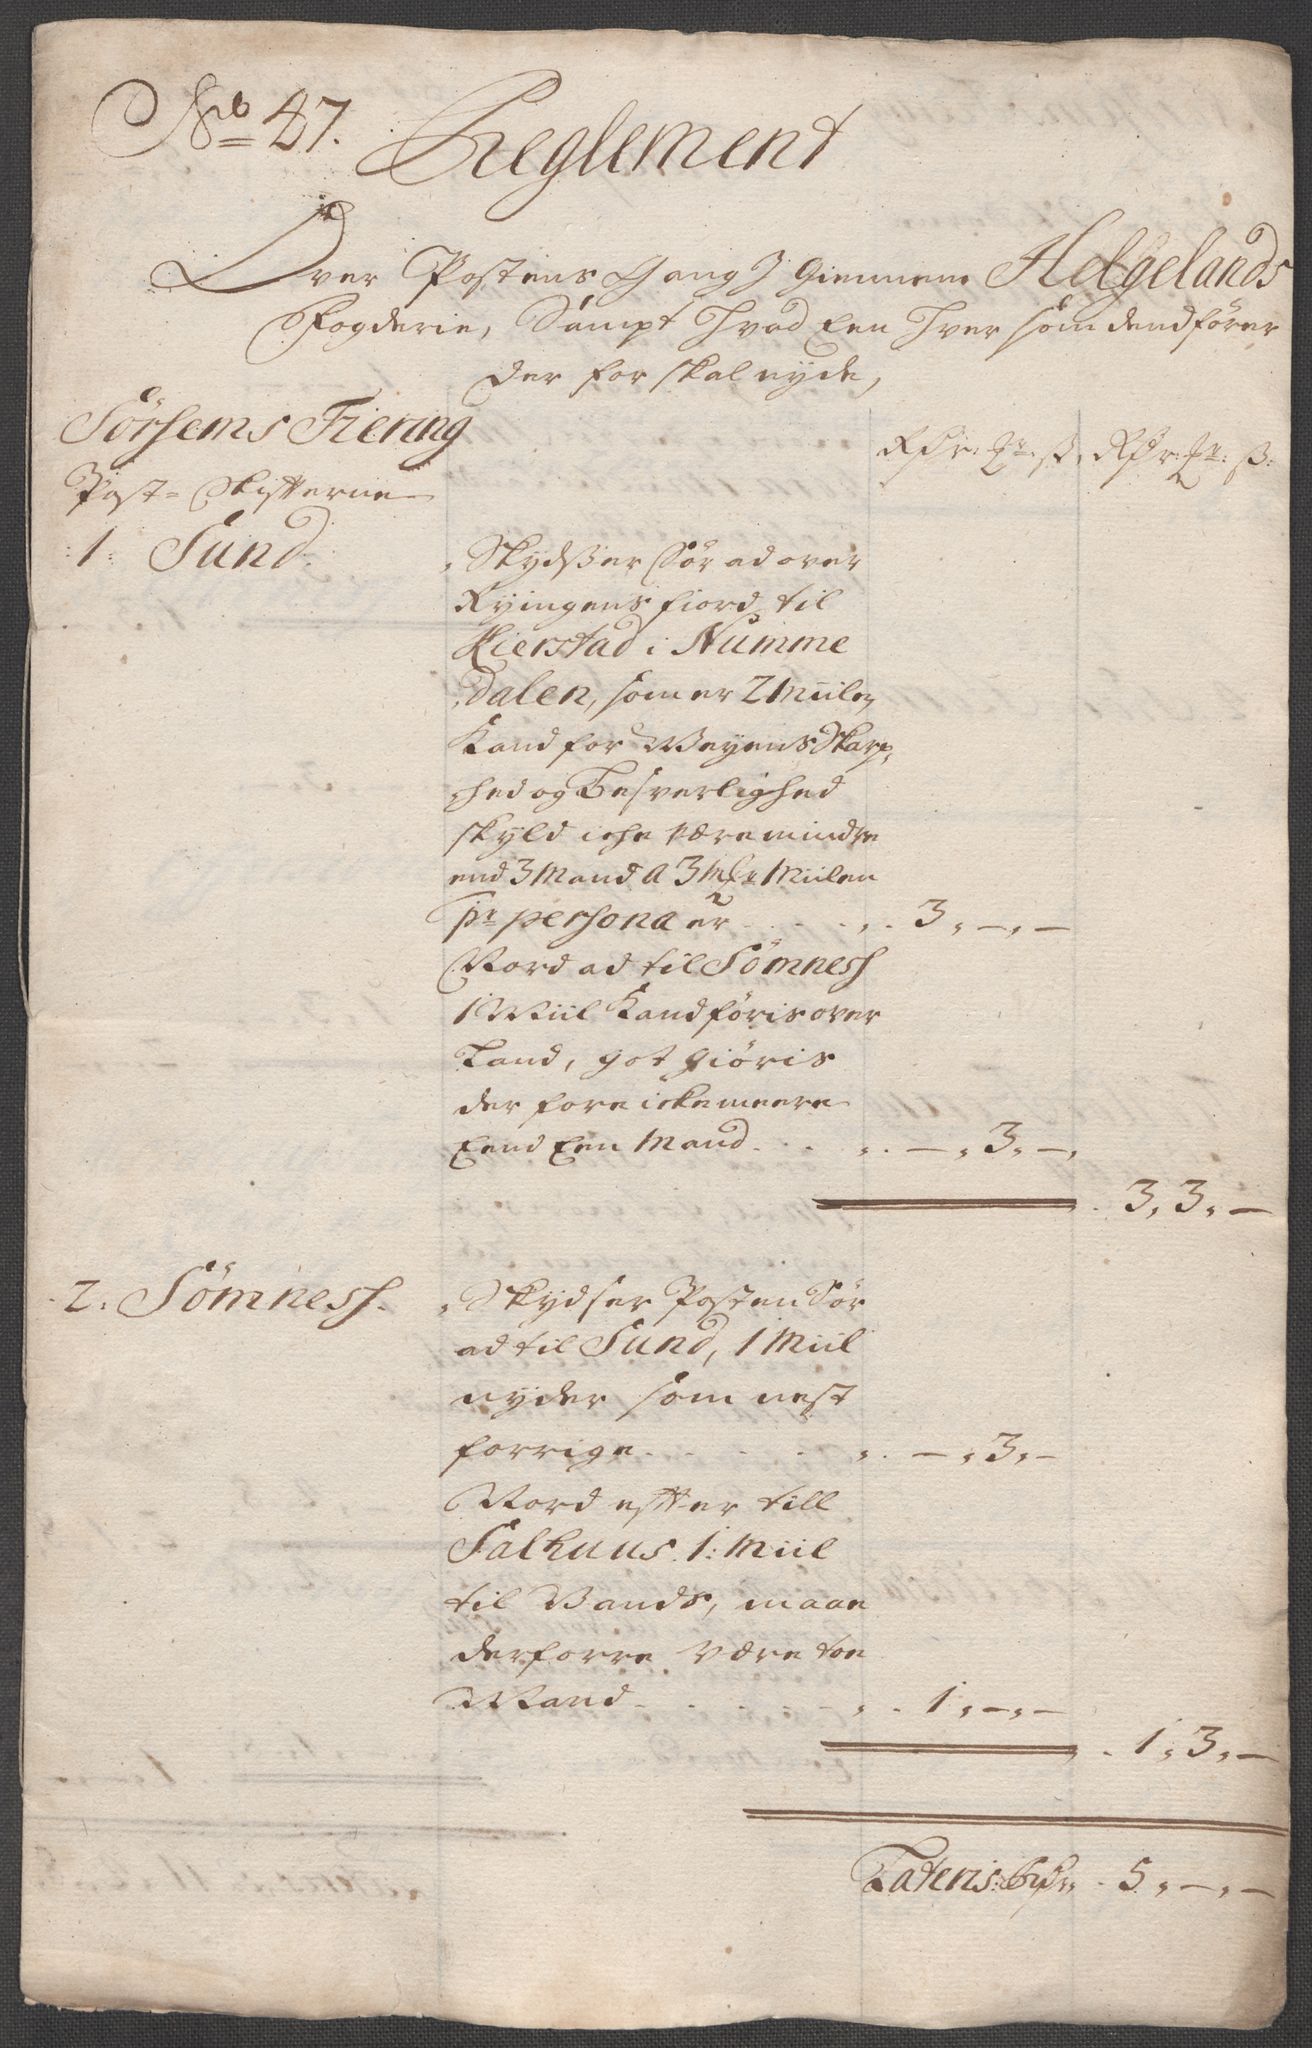 No 47. Reglement
Over Postens Gang I Giennem Helgelands
Fogderie, Sampt Hvad Een Hver som dend fører
der for skal nyde,
Sørhems Fiering
Rdr: Mk: ß, Rdr: Mk: ß:
Post-Skifterne
1: Sund.
Skydsser Sør ad over
Kyingens fiord til
Hierstad i Numme
dalen, som er 2 Miile,
Kand for Veyens Skarp,
hed og Besverlighed
skyld iche være mindre
end 3 Mand a 3 Mk Miilen
pr persona er . . . 3, -, -
Nord ad til Sømness
1 Miil Kand føris over
Land, got giøris
der fore icke meere
End Een Mand . . . -, 3, -,
3, 3, -
2. Sømness.
Skydser Posten Sør
ad til Sund, 1 Miil
nyder som nest
forrige . . . -, 3, -
Nord efter till
Salhuus 1: Miil
til Vands, maae
derforre være toe
Mand . . . 1, -, -
1, 3, -
Lateris 5, -, -